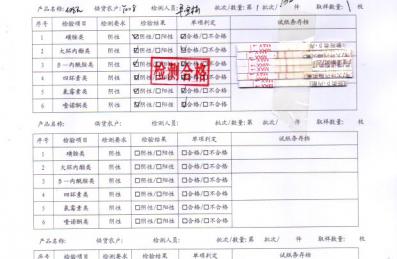 产品名称: 供货农户: 检测人员: 批次/数量:第1批次/ 件 取样数量:1枚
序号 检验项目 检测要求 检验结果 单项判定 试纸条存档
1 磺胺类 阴性 ☑阴性/□阳性 ☑合格/□不合格
2 大环内酯类 阴性 ☑阴性/□阳性 ☑合格/□不合格
3 β-内酰胺类 阴性 ☑阴性/□阳性 ☑合格/□不合格
4 四环素类 阴性 ☑阴性/□阳性 ☑合格/□不合格
5 氯霉素类 阴性 ☑阴性/□阳性 ☑合格/□不合格
6 喹诺酮类 阴性 ☑阴性/□阳性 ☑合格/□不合格
检测合格
产品名称: 供货农户: 检测人员: 批次/数量:第 批次/ 件 取样数量: 枚
序号 检验项目 检测要求 检验结果 单项判定 试纸条存档
1 磺胺类 阴性 □阴性/□阳性 □合格/□不合格
2 大环内酯类 阴性 □阴性/□阳性 □合格/□不合格
3 β-内酰胺类 阴性 □阴性/□阳性 □合格/□不合格
4 四环素类 阴性 □阴性/□阳性 □合格/□不合格
5 氯霉素类 阴性 □阴性/□阳性 □合格/□不合格
6 喹诺酮类 阴性 □阴性/□阳性 □合格/□不合格
产品名称: 供货农户: 检测人员: 批次/数量:第 批次/ 件 取样数量: 枚
序号 检验项目 检测要求 检验结果 单项判定 试纸条存档